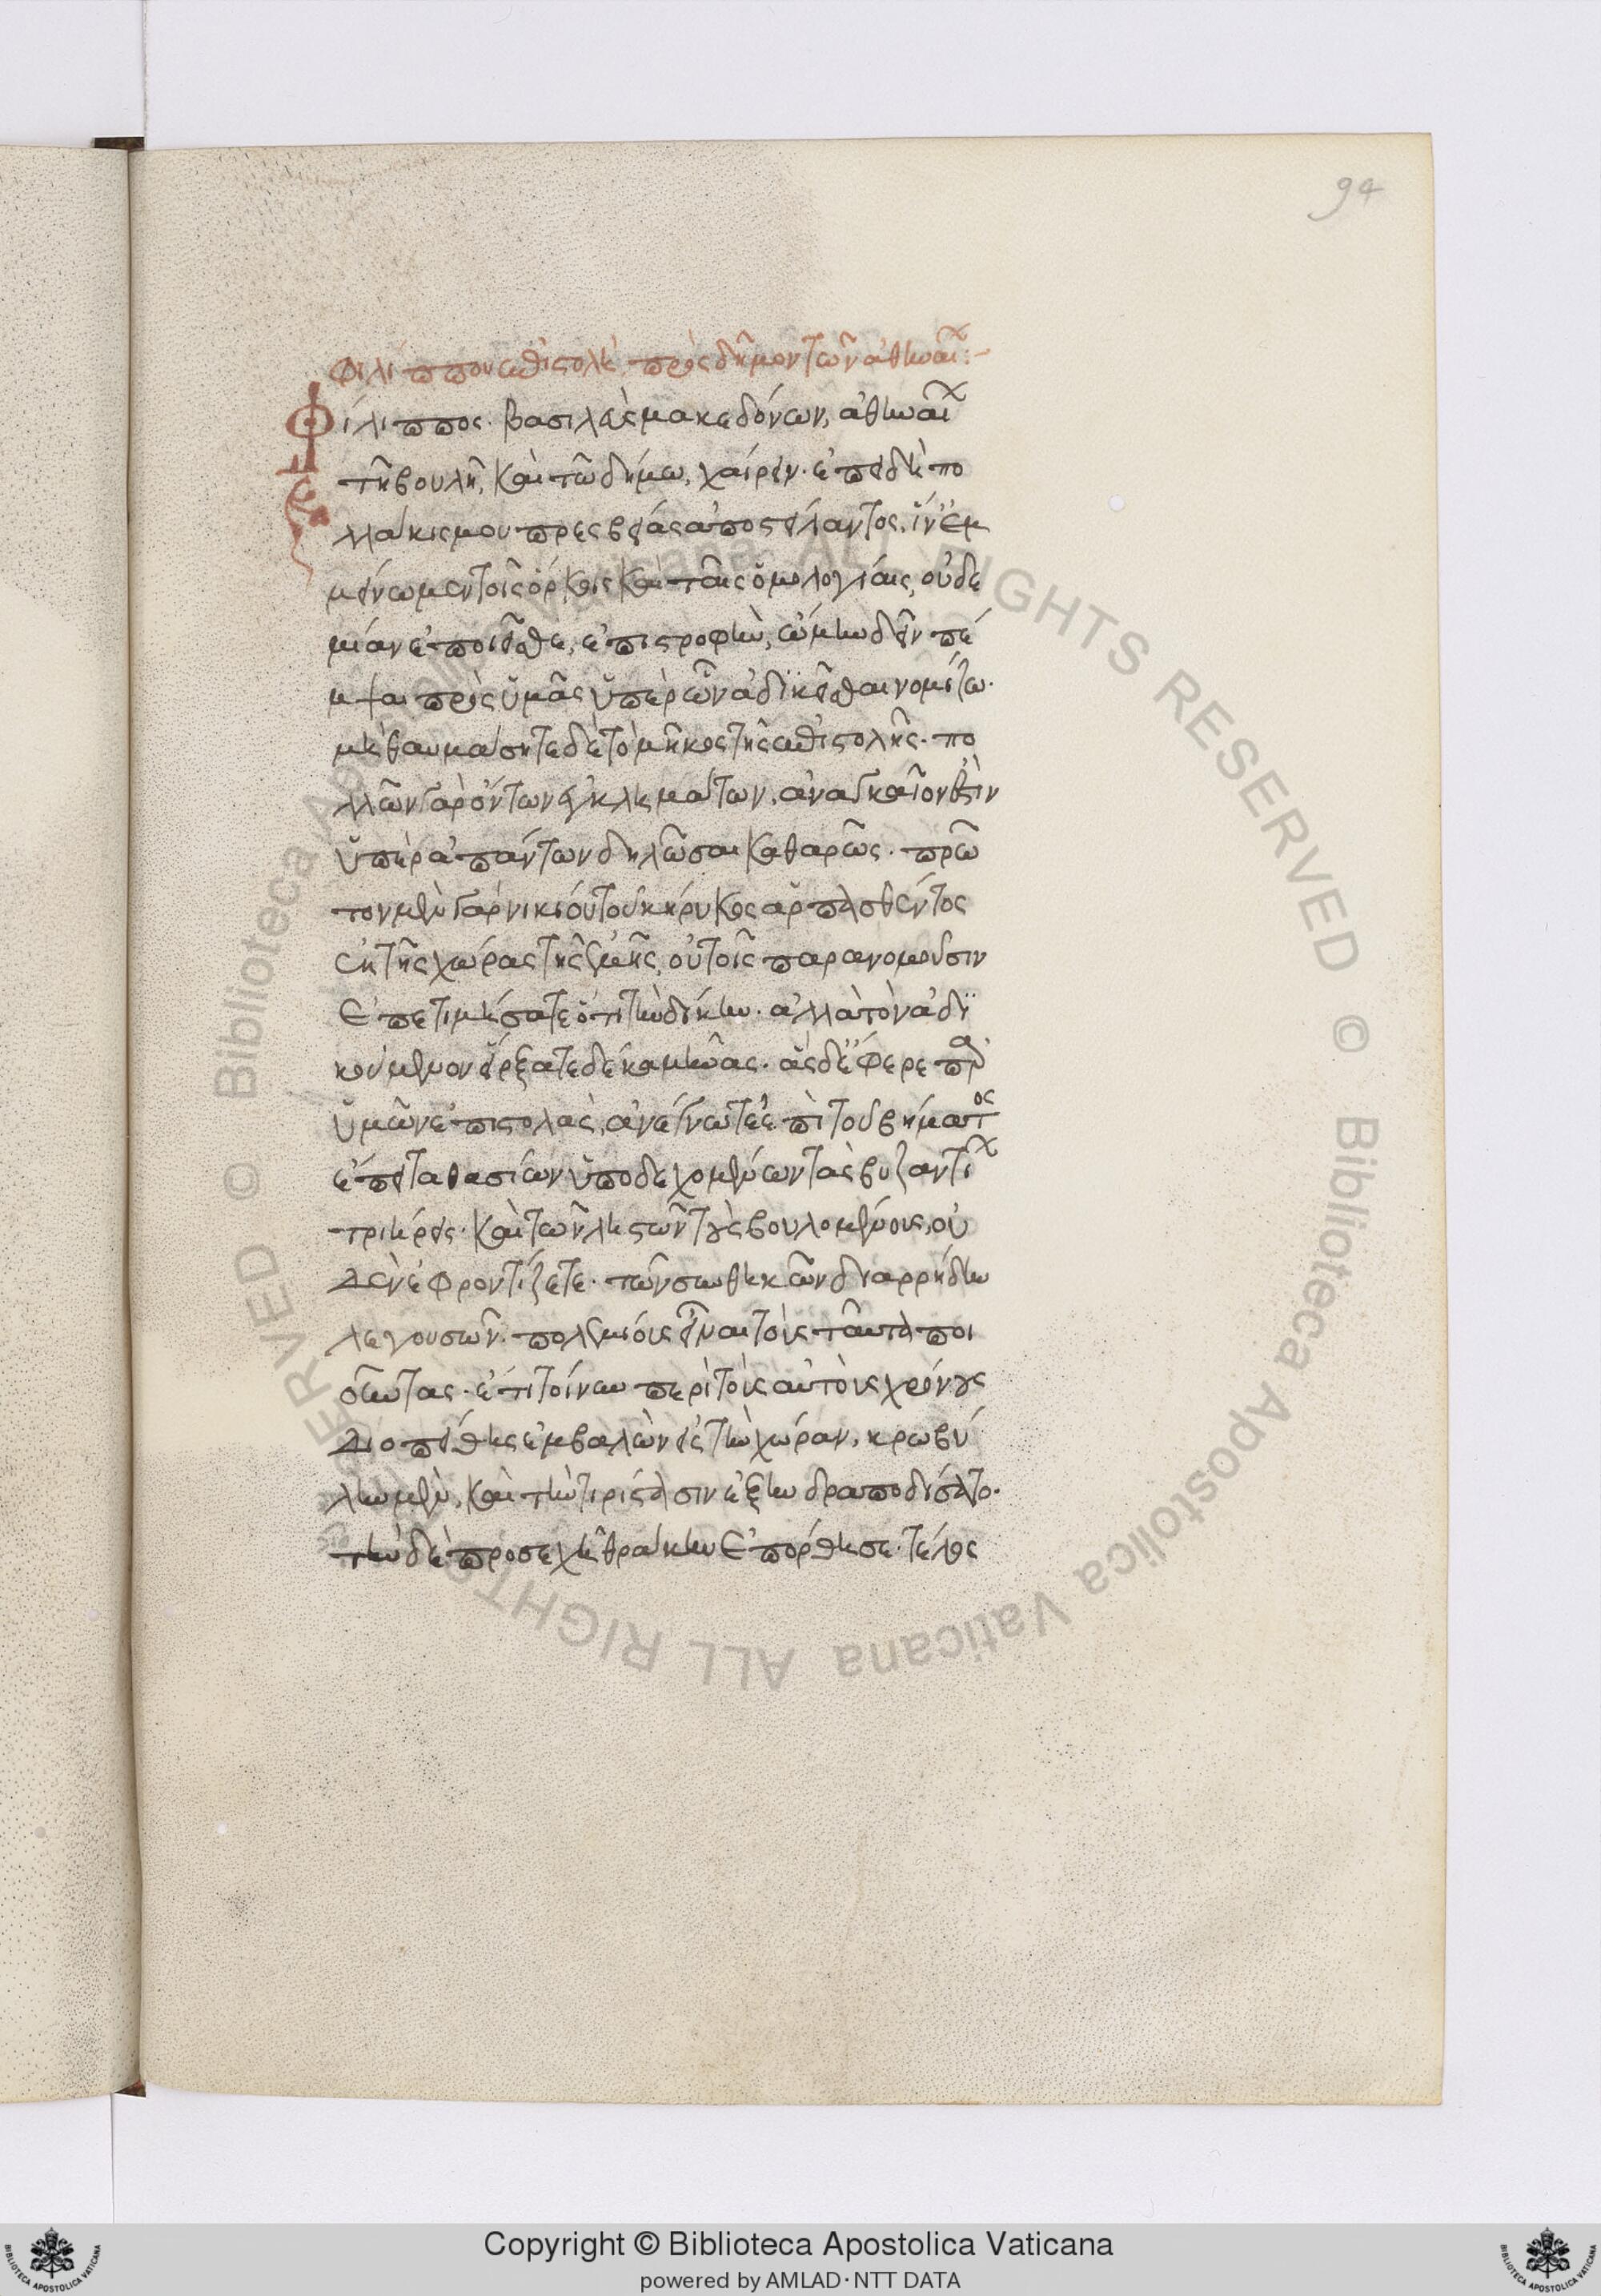 94
φιλίππου ἐπιστολὴ πρὸς δῆμον τῶν ἀθηναί:-
Φίλιππος. βασιλεὺς μακεδόνων, ἀθηναί
τῆ βουλῆ, καὶ τῶ δήμω, χαίρειν. ἐπειδὴ πο
λλάκις μου πρεσβείας ἀποστείλαντος, ἵν' ἐμ
μείνωμεν τοῖς ὅρκοις καὶ ταῖς ὁμολογίαις, οὐδε
μίαν ἐποιεῖσθε, ἐπιστροφὴν, ὤμην δεῖν πέ
μψαι πρὸς ὑμᾶς ὑπὲρ ὧν ἀδϊκεῖσθαι νομίζω.
μὴ θαυμάσητε δὲ τὸ μῆκος τῆς ἐπιστολῆς. πο
λλῶν γὰρ ὄντων ἐγκλημάτων, ἀναγκαῖον ἐστὶν
ὑπὲρ ἁπάντων δηλῶσαι καθαρῶς. πρῶ
τον μὲν γὰρ νικίου τοῦ κήρυκος ἁρπασθέντος
ἐκ τῆς χώρας τῆς ἐμῆς, οὐ τοῖς παρανομοῦσιν
ἐπετιμήσατε ὅτι τὴν δίκην. ἀλλὰ τὸν ἀδϊ
κούμενον εἵρξατε δέκα μῆνας. ἃς δ' ἔφερε πα
ὑμῶν ἐπιστολὰς, ἀνέγνωτε ἐπὶ τοῦ βήματος
ἔπειτα θασίων ὑποδεχομένων τὰς βυζαντί
τριήρεις. καὶ τῶν ληστῶν τοὺς βουλομένους, οὐ
δὲν ἐφροντίζετε. τῶν συνθηκῶν διαρρήδην
λεγουσῶν. πολεμίους εἶναι τοὺς ταῦτα ποι
οῦντας. ἔτι τοίνυν περὶ τοὺς αὐτοὺς χρόνους
Διοπείθης ἐμβαλὼν εἰς τὴν χώραν, κρωβύ
λην μὲν, καὶ τὴν τιρίστασιν ἐξηνδραποδίσατο.
τὴν δὲ προσεχῆ θράκην ἐπόρθησε. τέλος
Copyright © Biblioteca Apostolica Vaticana
powered by AMLAD·NTT DATA